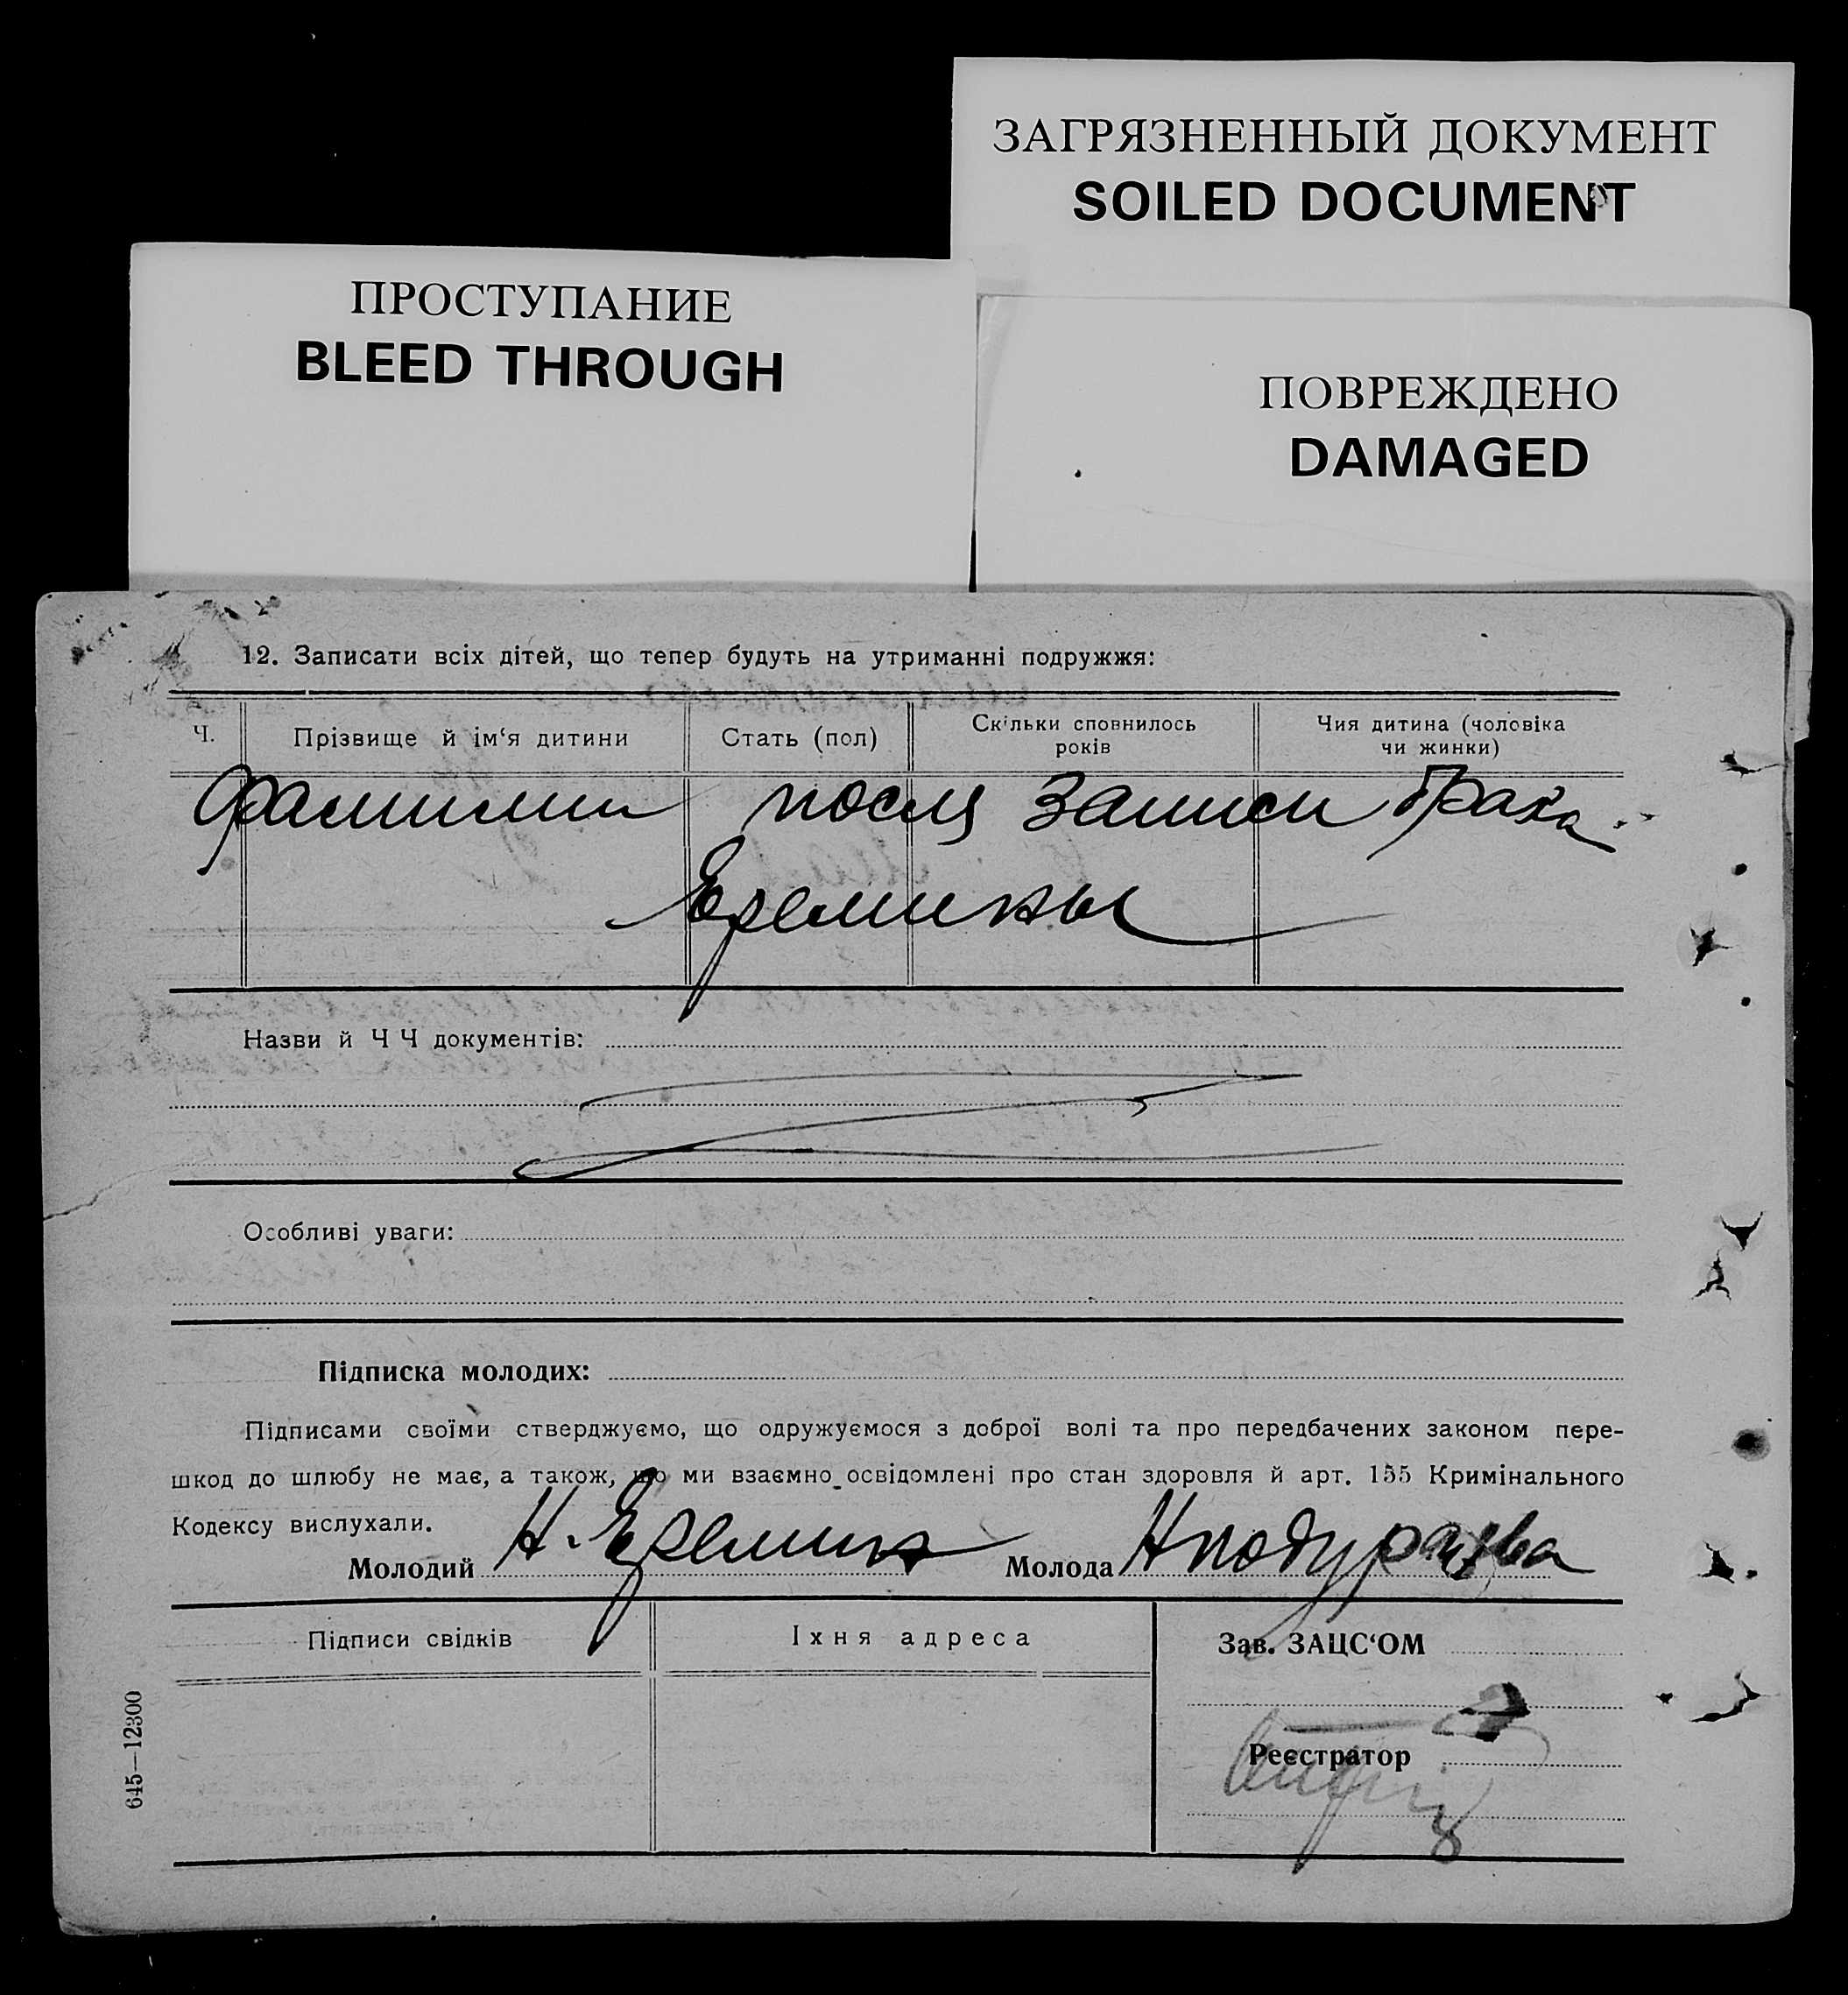 ЗАГРЯЗНЕННЫЙ ДОКУМЕНТ
SOILED DOCUMENT
ПРОСТУПАНИЕ
BLEED THROUGH
ПОВРЕЖДЕНО
DAMAGED
12. Записати всіх дітей, що тепер будуть на утриманні подружжя:
Ч.
Прізвище й ім‘я дитини
Стать (пол)
Скільки сповнилось
років
Чия дитина (чоловіка
чи жинки)
Фамилии после записи брака
Еремины
Назви й Ч Ч документів:
Особливі уваги:
Підписка молодих:
Підписами своїми стверджуємо, що одружуємося з доброї волі та про передбачених законом пере-
шкод до шлюбу не має, а також, що ми взаємно освідомлені про стан здоровля й арт. 155 Кримінального
Кодексу вислухали.
Молодий Н. Еремин Молода
Підписи свідків
Їхня адреса
Зав. ЗАЦС‘ОМ
Реєстратор
645—12300